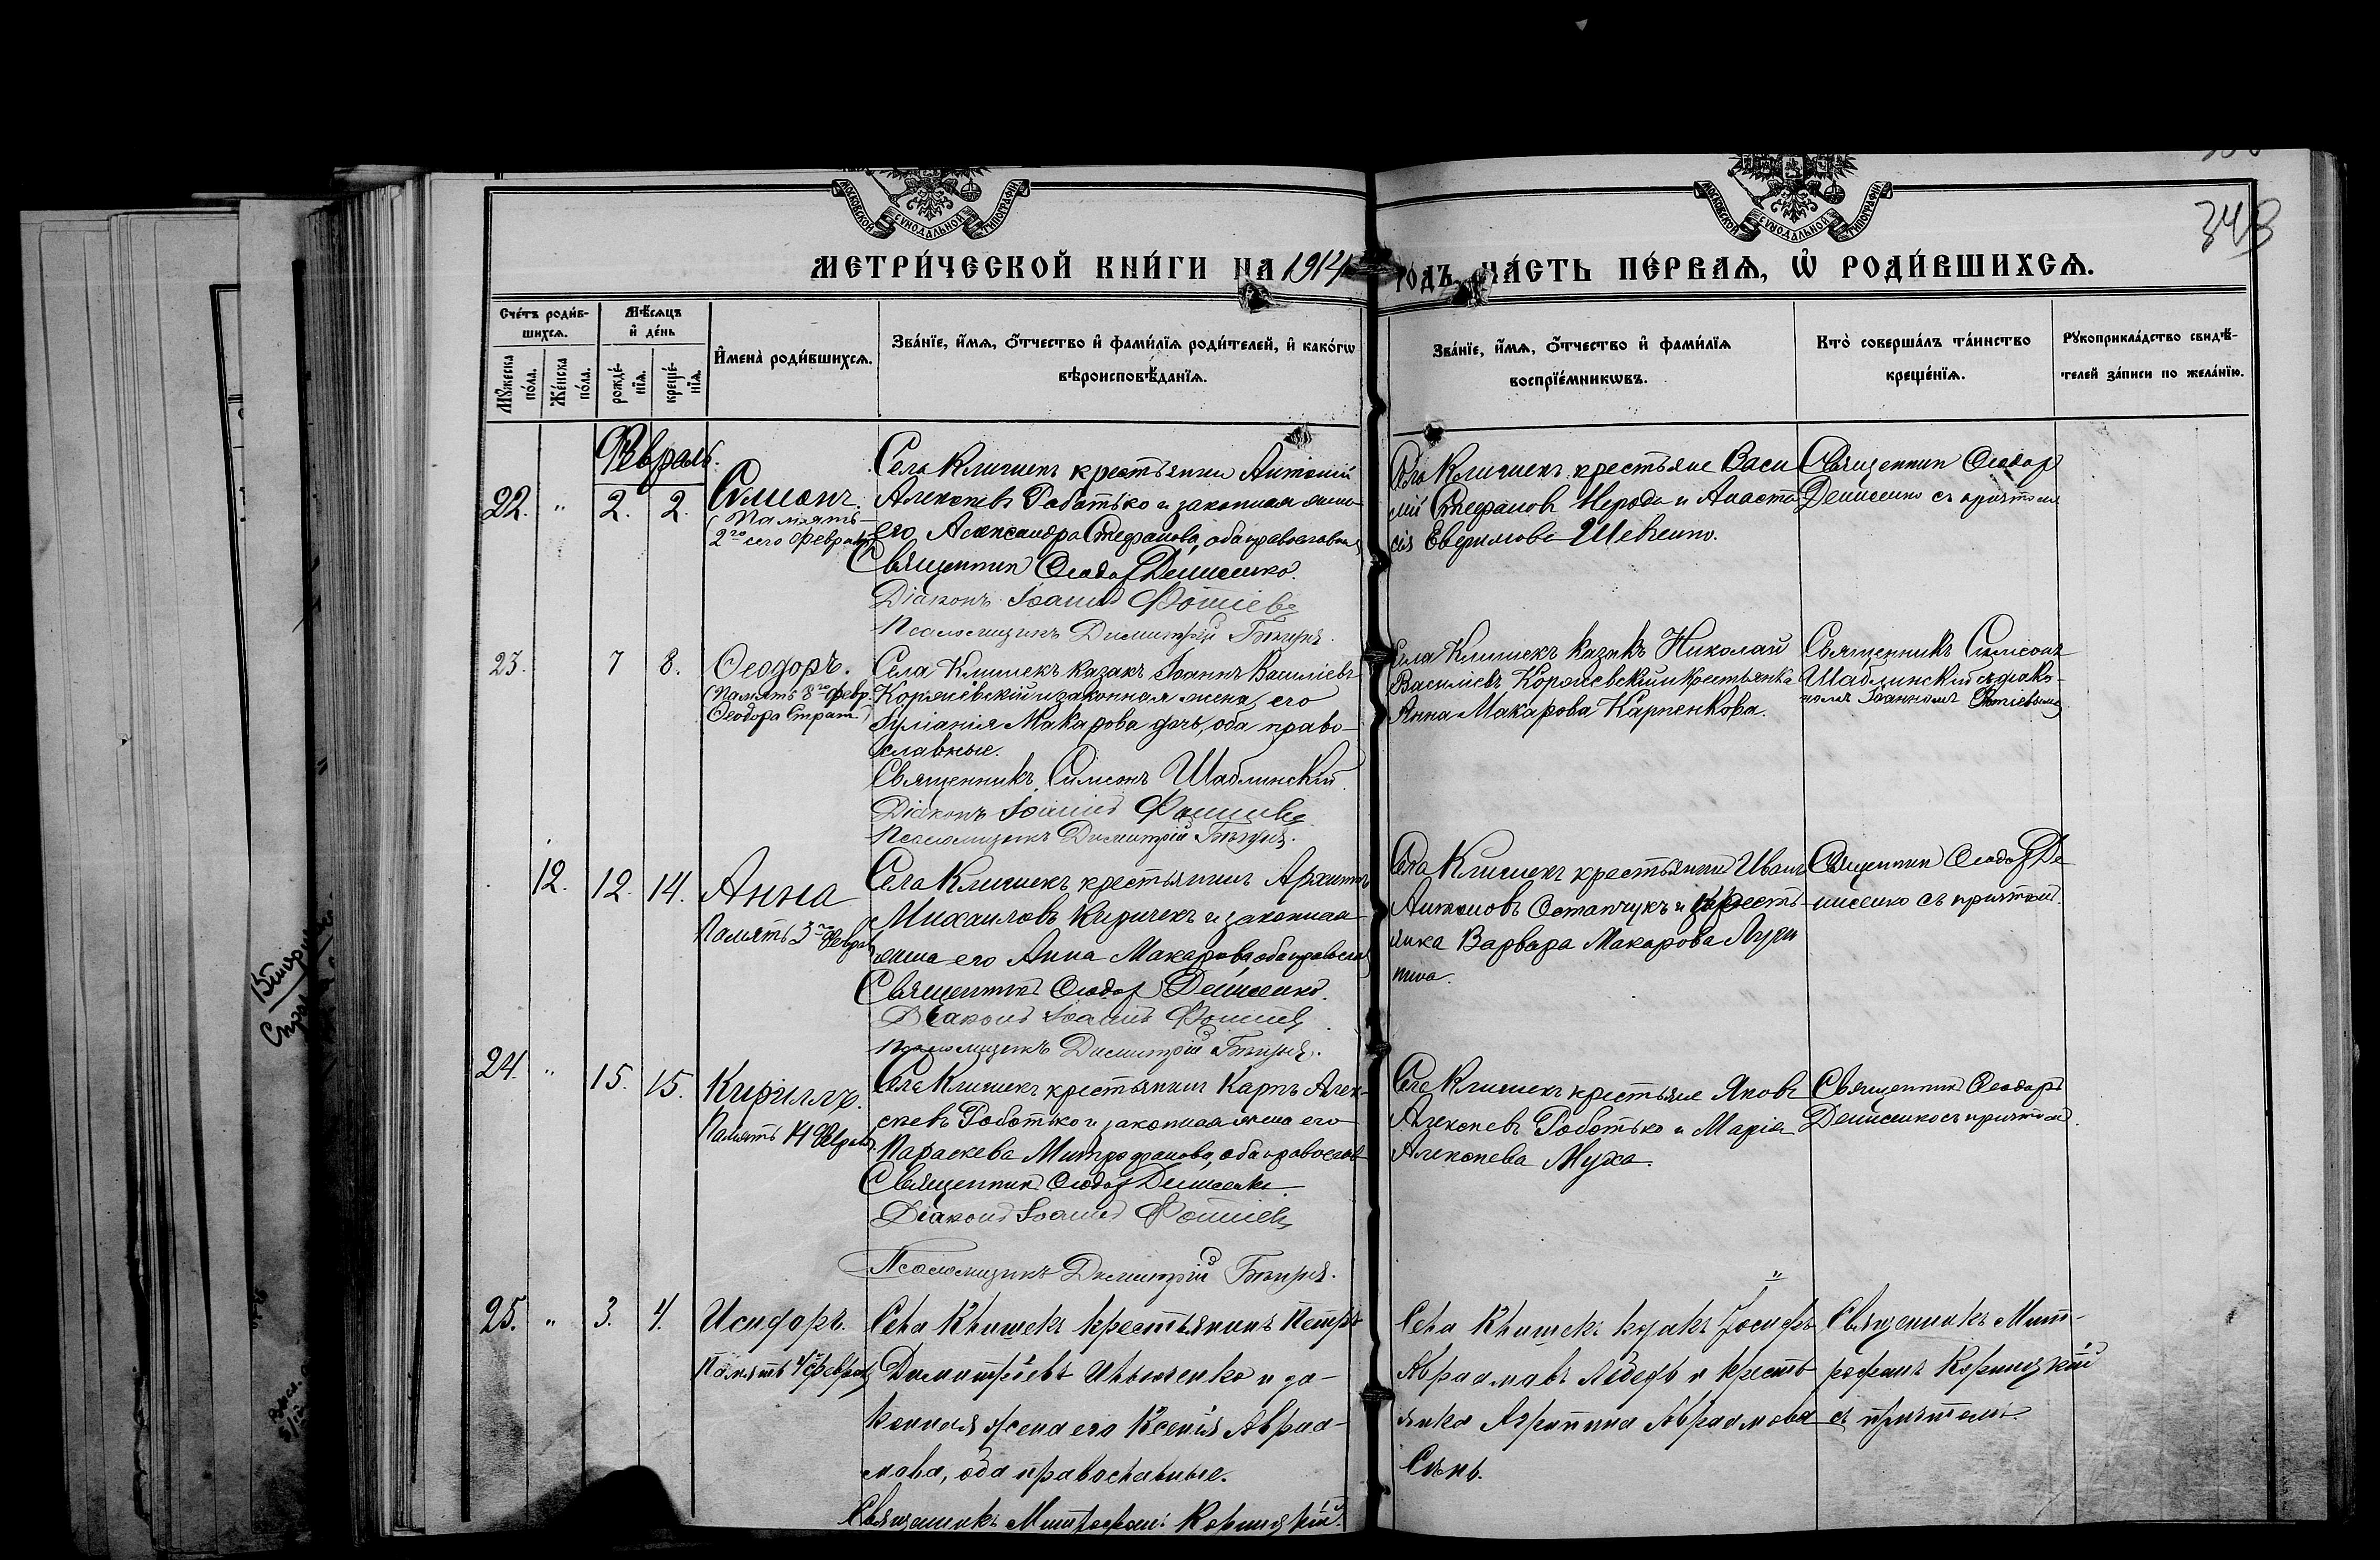 МОСКОВСКОЙ СѴНОДАЛЬНОЙ ТИПОГРАФІИ
МОСКОВСКОЙ СѴНОДАЛЬНОЙ ТИПОГРАФІИ
348
МЕТРИ́ЧЕСКОЙ КНИ́ГИ НА 1914 ГОДЪ, ЧА́СТЬ ПЕ́РВАѦ, Ѡ҆ РОДИ́ВШИХСѦ.
Сче́тъ роди́в-
шихсѧ.
Мꙋ́жеска по́ла.
Же́нска по́ла.
Мѣ́сѧцъ
и҆ де́нь
рожде́-
нїѧ.
креще́-
нїѧ.
И҆мена̀ роди́вшихсѧ.
Зва́нїе, и҆́мѧ, ѻ҆́тчество и҆ фами́лїѧ роди́телей, и҆ како́гѡ
вѣроисповѣ́данїѧ.
Зва́нїе, и҆́мѧ, ѻ҆́тчество и҆ фами́лїѧ
воспрїе́мникѡвъ.
Кто̀ соверша́лъ та́инство
креще́нїѧ.
Рꙋкоприкла́дство свидѣ́-
телей за́писи по жела́нїю.
Февраль.
22. " 2. 2. Симеонъ.
(Память
2го сего февраля)
Села Клишекъ крестьянин Антоній
Алексеевъ Роботько и законная жена
его Александра Стефанова, оба православны
Священник Ѳеодор Денисенко.
Діаконъ Іоаннъ Фотіевъ
Псаломщикъ Димитрій
Села Клишекъ крестьяне Васи
лій Стефанов Нерода и Анаста
сія Евфимова Шевченко.
Священник Ѳеодор
Денисенко съ причтом
23. 7 8. Ѳеодоръ.
(Память 8го февр.
Ѳеодора Страт.)
Села Клишекъ казакъ Іоаннъ Василіевъ
Коржевскій и законная жена его
Іуліанія Макарова дочь, оба право-
славные.
Священникъ Симеонъ Шаблинскій.
Діаконъ Іоаннъ Фотіевъ
Псаломщикъ Димитрій
Села Клишекъ казакъ Николай
Василіевъ Коржевскій и крестьянка
Анна Макарова Карпенкова.
Священникъ Симеонъ
Шаблинскій съ діако-
номъ Іоанномъ Фотіевымъ
12. 12. 14. Анна
Память 3го Февраля
Села Клишекъ крестьянинъ Архиппъ
Михаиловъ Киричекъ и законная
жена его Анна Макарова, оба православ
Священникъ Ѳеодор Денисенко.
Діаконъ Іоаннъ Фотіев
Псаломщикъ Димитрій
Села Клишекъ крестьянин Иванъ
Антоновъ Остапчукъ и крестъ-
янка Варвара Макарова
Священник Ѳеодор Де
нисенко съ причтом.
24. " 15. 15. Кириллъ.
Память 14 Февраля
Села Клишекъ крестьянин Карпъ Алек-
сеевъ Роботько и законная жена его
Параскева Митрофанова, оба православ
Священник Ѳеодор Денисенко
Діаконъ Іоаннъ Фотіевъ
Псаломщикъ Димитрій
Села Клишекъ крестьяне Яковъ
Алексеевъ Роботько и Марія
Алексеева Муха.
Священник Ѳеодоръ
Денисенко съ причтом.
25. " 3. 4. Исидоръ.
Память 4 февраля
Села Клишекъ крестьянинъ Петръ
Димитріевъ Ильюченко и за-
конная жена его Ксенія Авраа-
мова, оба православные.
Священникъ Митрофанъ Корницкій.
Села Клишекъ козакъ Іосифъ
Авраамовъ Лебедь и кресть
янка Агрипина Авраамова
Священникъ Мит-
рофанъ Корницкій
съ причтомъ.